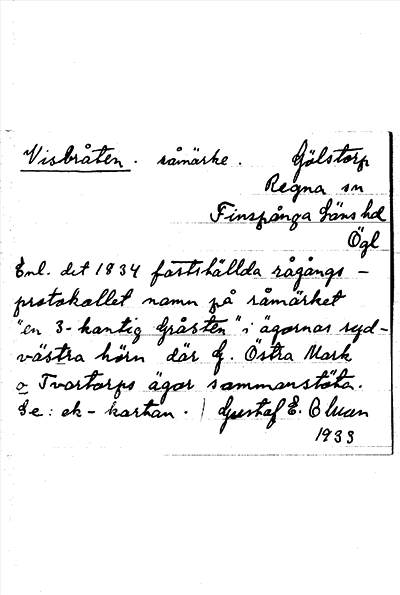 Visbråten. råmärke. Gölstorp
Regna sn
Finspånga läns hd
Ögl
Enl. det 1834 fastställda rågångs-
protokollet namn på råmärket
"en 3-kantig Gråsten" i ägornas syd-
västra hörn där G. Östra Mark
o Tvartorps ägor sammanstöta.
Se: ek-kartan. | Gustaf E. Bluan
1933